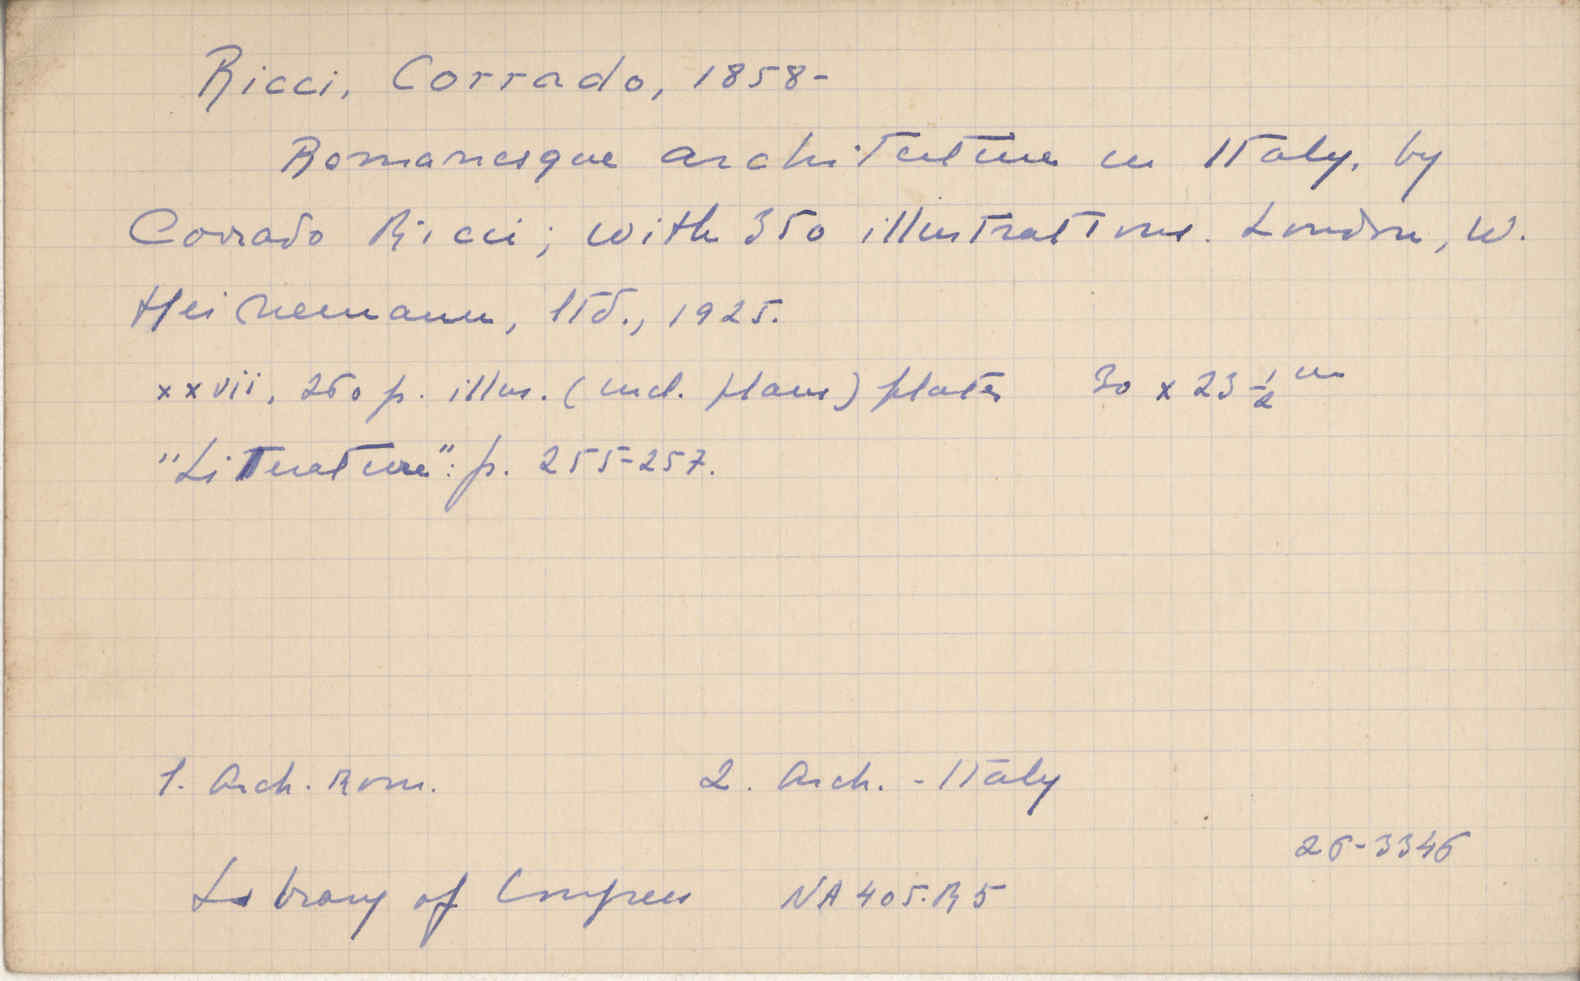 Ricci, Corrado, 1858-
Romanesque architecture in Italy, by
Corrado Ricci; with 350 illustrations. London, W.
Heinemann, ltd., 1925.
xxvii, 260 p. illus. (incl. plans) plates 30 x 23 ½ cm
"Literature": p. 255-257.
1. Arch. Rom. 2. Arch. - Italy
26-3346
Library of Congress NA405.R5